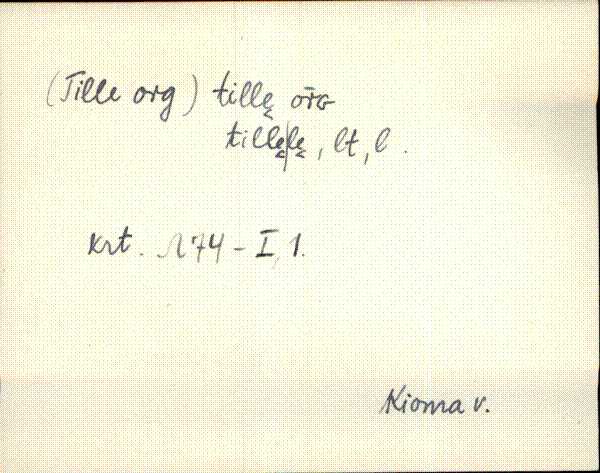 (Tille org) tillę ōrɢ
tillę|lę, lt, l.
krt. Л74 - I, 1.
Kioma v.